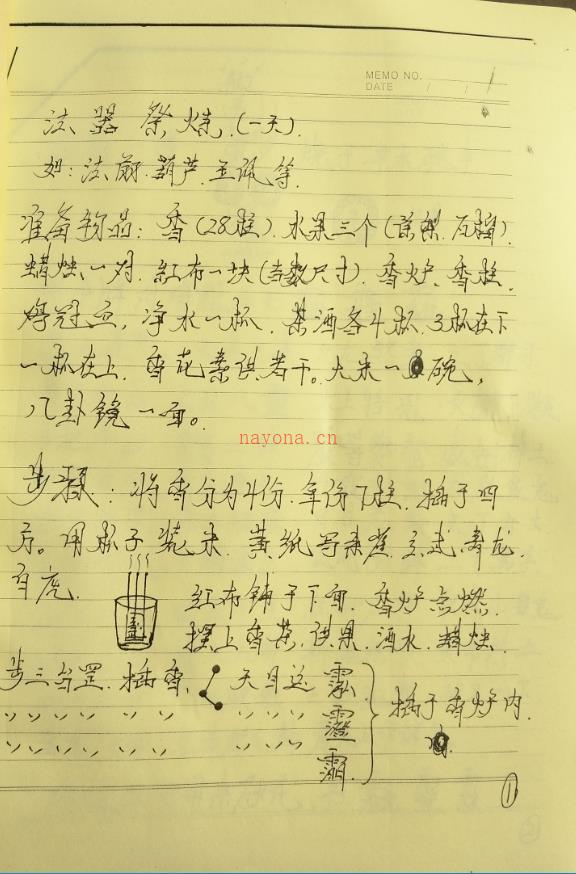 MEMO NO. 1
DATE / /
法器祭炼.(一天).
如:法扇.葫芦.玉佩等.
准备物品:香(28柱).水果三个(
蜡烛一对.红布一块(尺寸).香炉.香柱.
净水一杯.茶酒各4杯,3杯在下
一杯在上.香花素供若干。大米一碗,
八卦镜一面。
nayona.cn
步骤:将香分为4份.每份7柱.插于四
方。用杯子装米.黄纸写朱雀.玄武.青龙.
白虎.
红布铺于下面.香炉点燃.
摆上香茶.供果.酒水.蜡烛.
步三台罡.插香.天目运
插于香炉内.
1